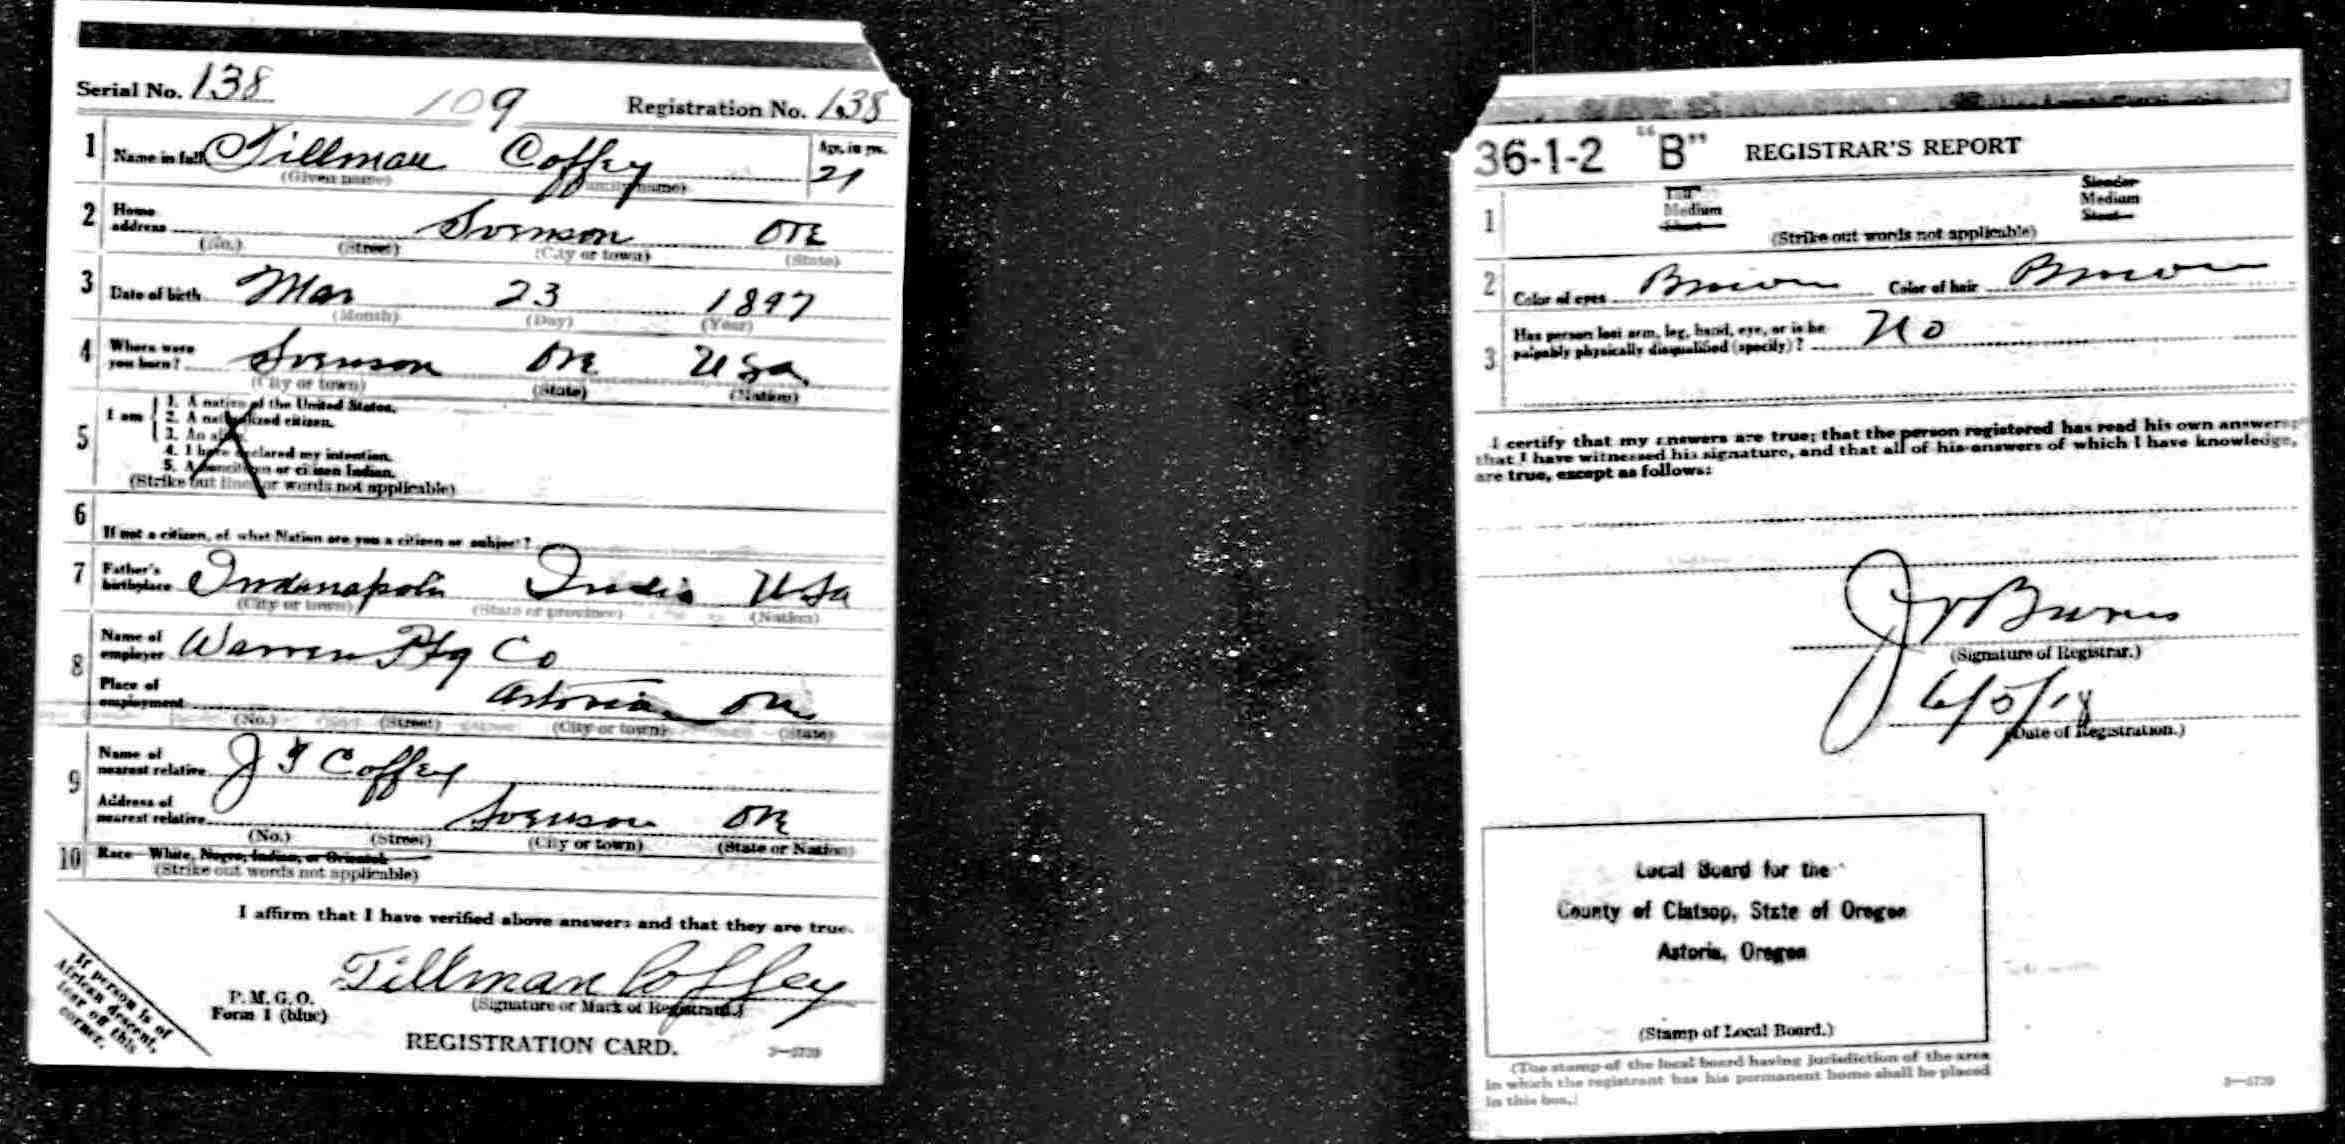 Serial No. 138
109
Registration No. 138
1 Name in full Tillman Coffey
Age, in yrs. 21
(Given name) (Family name)
2 Home address Svenson Ore
(No.) (Street) (City or town) (State)
3 Date of birth Mar 23 1897
(Month) (Day) (Year)
4 Where were you born? Svenson Ore USa.
(City or town) (State) (Nation)
5 I am
1. A native of the United States.
2. A naturalized citizen.
3. An alien.
4. I have declared my intention.
5. A noncitizen or citizen Indian.
(Strike out lines or words not applicable)
6 If not a citizen, of what Nation are you a citizen or subject?
7 Father's birthplace Indanapolis India USa
(City or town) (State or province) (Nation)
8 Name of employer Warren Pkg Co
Place of employment Astoria Ore
(No.) (Street) (City or town) (State)
9 Name of nearest relative J T Coffey
Address of nearest relative Svenson Ore
(No.) (Street) (City or town) (State or Nation)
10 Race—White, Negro, Indian, or Oriental
(Strike out words not applicable)
I affirm that I have verified above answers and that they are true.
Tillman Coffey
(Signature or Mark of Registrant.)
P. M. G. O.
Form 1 (blue)
REGISTRATION CARD.
3—5739
If person is of
African descent,
tear off this
corner.
36-1-2 "B" REGISTRAR'S REPORT
1 Tall Slender
Medium Medium
Short Stout
(Strike out words not applicable)
2 Color of eyes Brown Color of hair Brown
3 Has person lost arm, leg, hand, eye, or is he
palpably physically disqualified (specify)? No
I certify that my answers are true; that the person registered has read his own answers;
that I have witnessed his signature, and that all of his answers of which I have knowledge,
are true, except as follows:
J V Burns
(Signature of Registrar.)
6/5/18
(Date of Registration.)
Local Board for the
County of Clatsop, State of Oregon
Astoria, Oregon
(Stamp of Local Board.)
(The stamp of the local board having jurisdiction of the area
in which the registrant has his permanent home shall be placed
in this box.)
3—5739